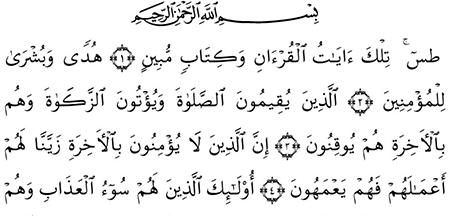 بِسْمِ اللَّهِ الرَّحْمَٰنِ الرَّحِيمِ
طسٓ ۚ تِلْكَ ءَايَٰتُ الْقُرْءَانِ وَكِتَابٍ مُّبِينٍ ﴿١﴾ هُدًى وَبُشْرَىٰ
لِلْمُؤْمِنِينَ ﴿٢﴾ الَّذِينَ يُقِيمُونَ الصَّلَوٰةَ وَيُؤْتُونَ الزَّكَوٰةَ وَهُم
بِالْأَخِرَةِ هُمْ يُوقِنُونَ ﴿٣﴾ إِنَّ الَّذِينَ لَا يُؤْمِنُونَ بِالْأَخِرَةِ زَيَّنَّا لَهُمْ
أَعْمَٰلَهُمْ فَهُمْ يَعْمَهُونَ ﴿٤﴾ أُوْلَٰٓئِكَ الَّذِينَ لَهُمْ سُوٓءُ الْعَذَابِ وَهُمْ